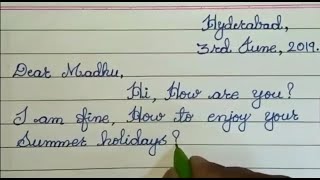 Hyderabad,
3rd June, 2019.
Dear Madhu,
Hi, How are you?
I am fine, How to enjoy your
Summer holidays?